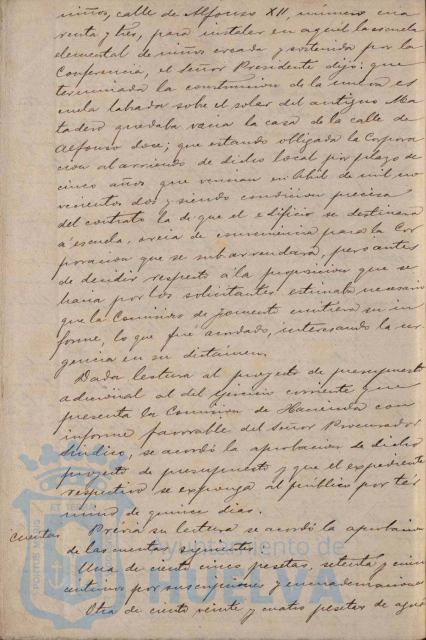 niños, calle de Alfonso XII, número cua
renta y tres, para instalar en aquel la escuela
elemental de niños creada y sostenida por la
Conferencia, el Señor Presidente dijo: que
terminada la construccion de la nueva es
cuela labrada sobre el solar del antiguo Ma
tadero quedaba vacia la casa de la calle de
Alfonso doce; que estando obligada la Corpora
cion al arriendo de dicho local por plazo de
cinco años que vencian en Abril de mil no
vecientos dos y siendo condicion precisa
del contrato la de que el edificio se destinara
a escuela, creia de conveniencia para la Cor
poracion que se subarrendara, pero antes
de decidir respecto á la proposicion que se
hacia por los solicitantes estimaba necesario
que la Comision de fomento emitiera su in
forme, lo que fue acordado, interesando la ur
gencia en su dictamen.
Dada lectura al proyecto de presupuesto
adicional al del ejercicio corriente que
presenta la Comision de Hacienda con
informe favorable del Señor Procurador
Sindico, se acordó la aprobacion de dicho
proyecto de presupuesto y que el expediente
respectivo se exponga al público por tér
mino de quince dias.
cuentas Previa su lectura se acordó la aprobacion
de las cuentas siguientes:
Una de ciento cinco pesetas, setenta y cinco
centimos por suscripciones y encuadernaciones
Otra de ciento veinte y cuatro pesetas de
Ayuntamiento de
HUELVA